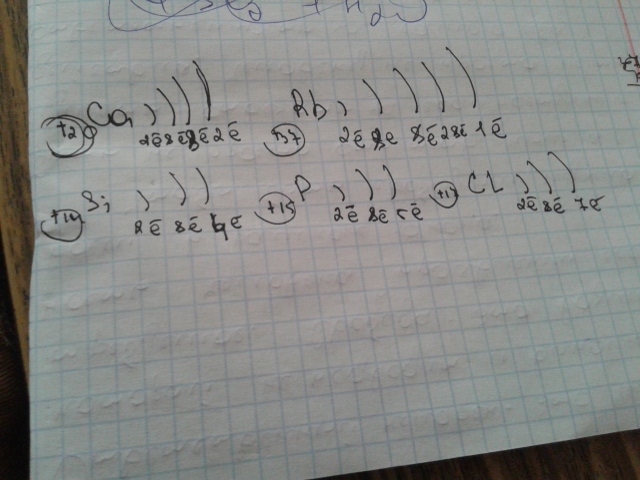 +20 Ca 2ē 8ē 8ē 2ē
+37 Rb 2ē 8e 8ē 28ē 1ē
+14 Si 2ē 8ē 4ē
+15 P 2ē 8ē 5ē
+17 CL 2ē 8ē 7ē